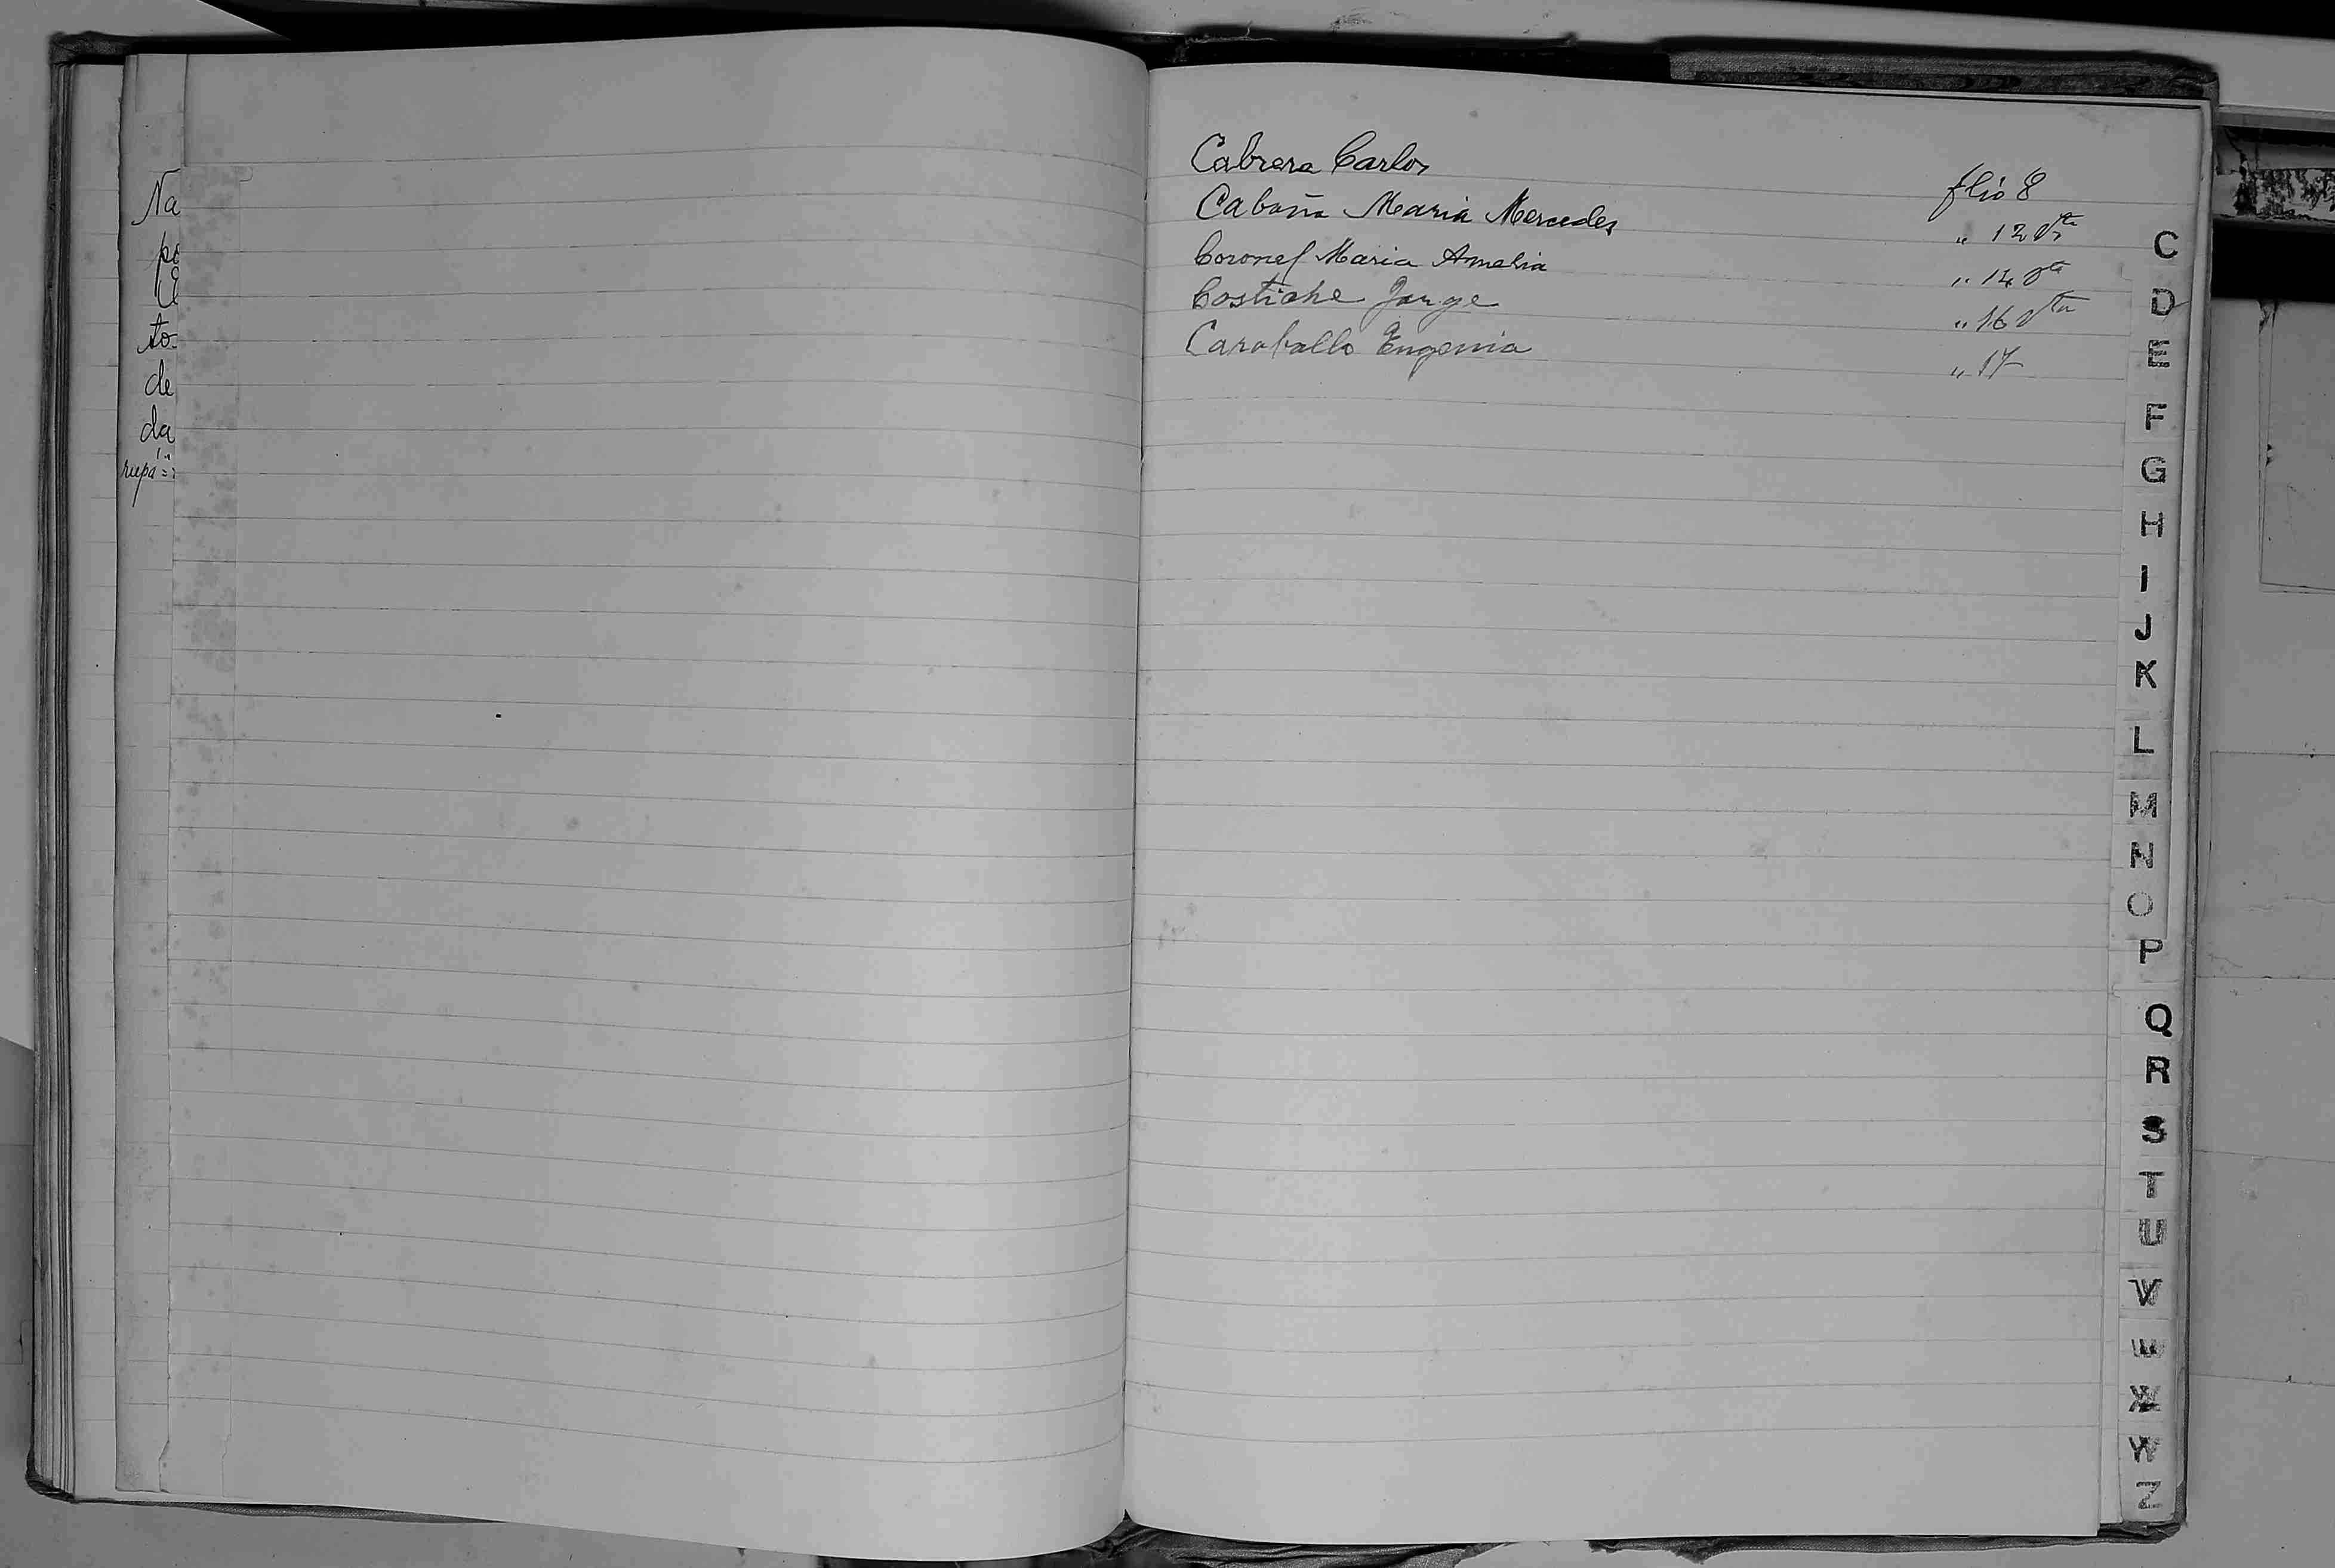 Na
po
to-
de
da
Cabrera Carlos flio 8
Cabaña Maria Mercedes " 12 vta
Coronel Maria Amelia " 14 vta
Costiche Jorge " 16 vta
Caraballo Eugenia " 17
C
D
E
F
G
H
I
J
K
L
M
N
O
P
Q
R
S
T
U
V
W
X
Y
Z